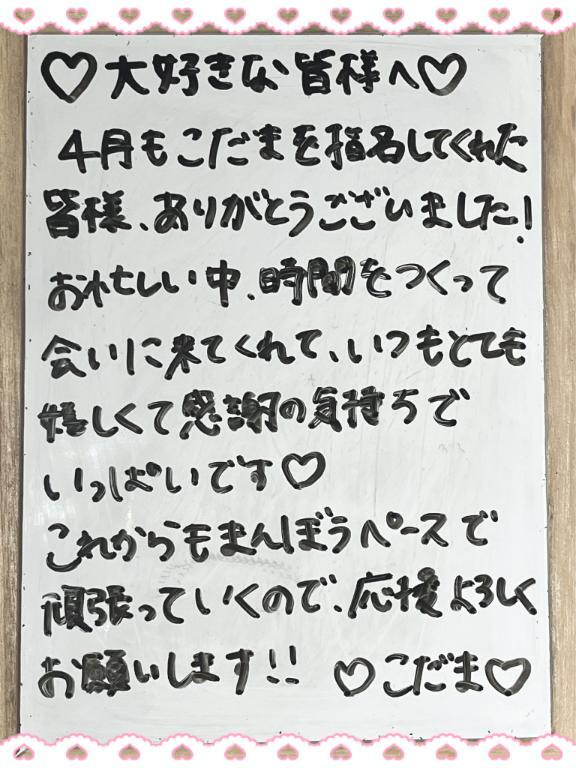 ♡大好きな皆様へ♡
4月もこだまを指名してくれた
皆様、ありがとうございました!
お忙しい中、時間をつくって
会いに来てくれて、いつもとても
嬉しくて感謝の気持ちで
いっぱいです♡
これからもまんぼうペースで
頑張っていくので、応援よろしく
お願いします!! ♡こだま♡